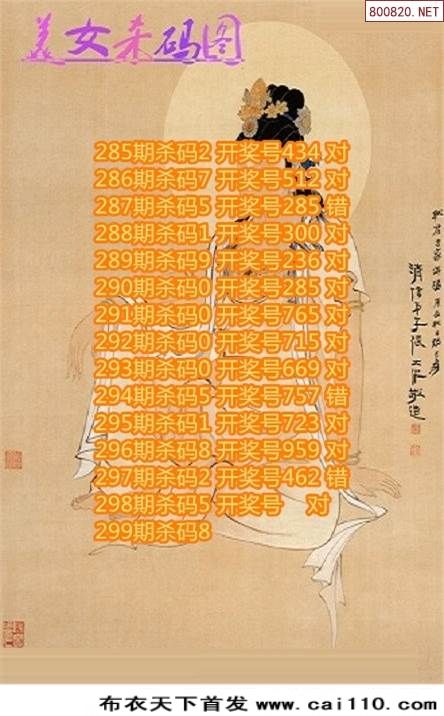 800820.NET
美女杀码图
285期杀码2 开奖号434 对
286期杀码7 开奖号512 对
287期杀码5 开奖号285 错
288期杀码1 开奖号300 对
289期杀码9 开奖号236 对
290期杀码0 开奖号285 对
291期杀码0 开奖号765 对
292期杀码0 开奖号715 对
293期杀码0 开奖号669 对
294期杀码5 开奖号757 错
295期杀码1 开奖号723 对
296期杀码8 开奖号959 对
297期杀码2 开奖号462 错
298期杀码5 开奖号 对
299期杀码8
布衣天下首发 www.cai110.com